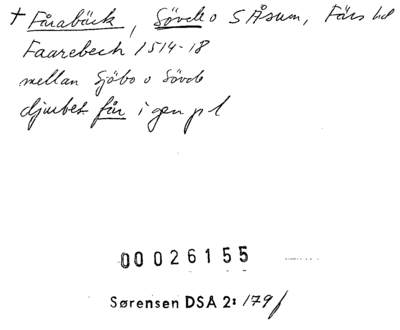 + Fårabäck, Sövde o S Åsum, Färs hd
Faarebech 1514-18
mellan Sjöbo o Sövde
djurbet. får i gen pl
00026155
Sørensen DSA 2: 179 f